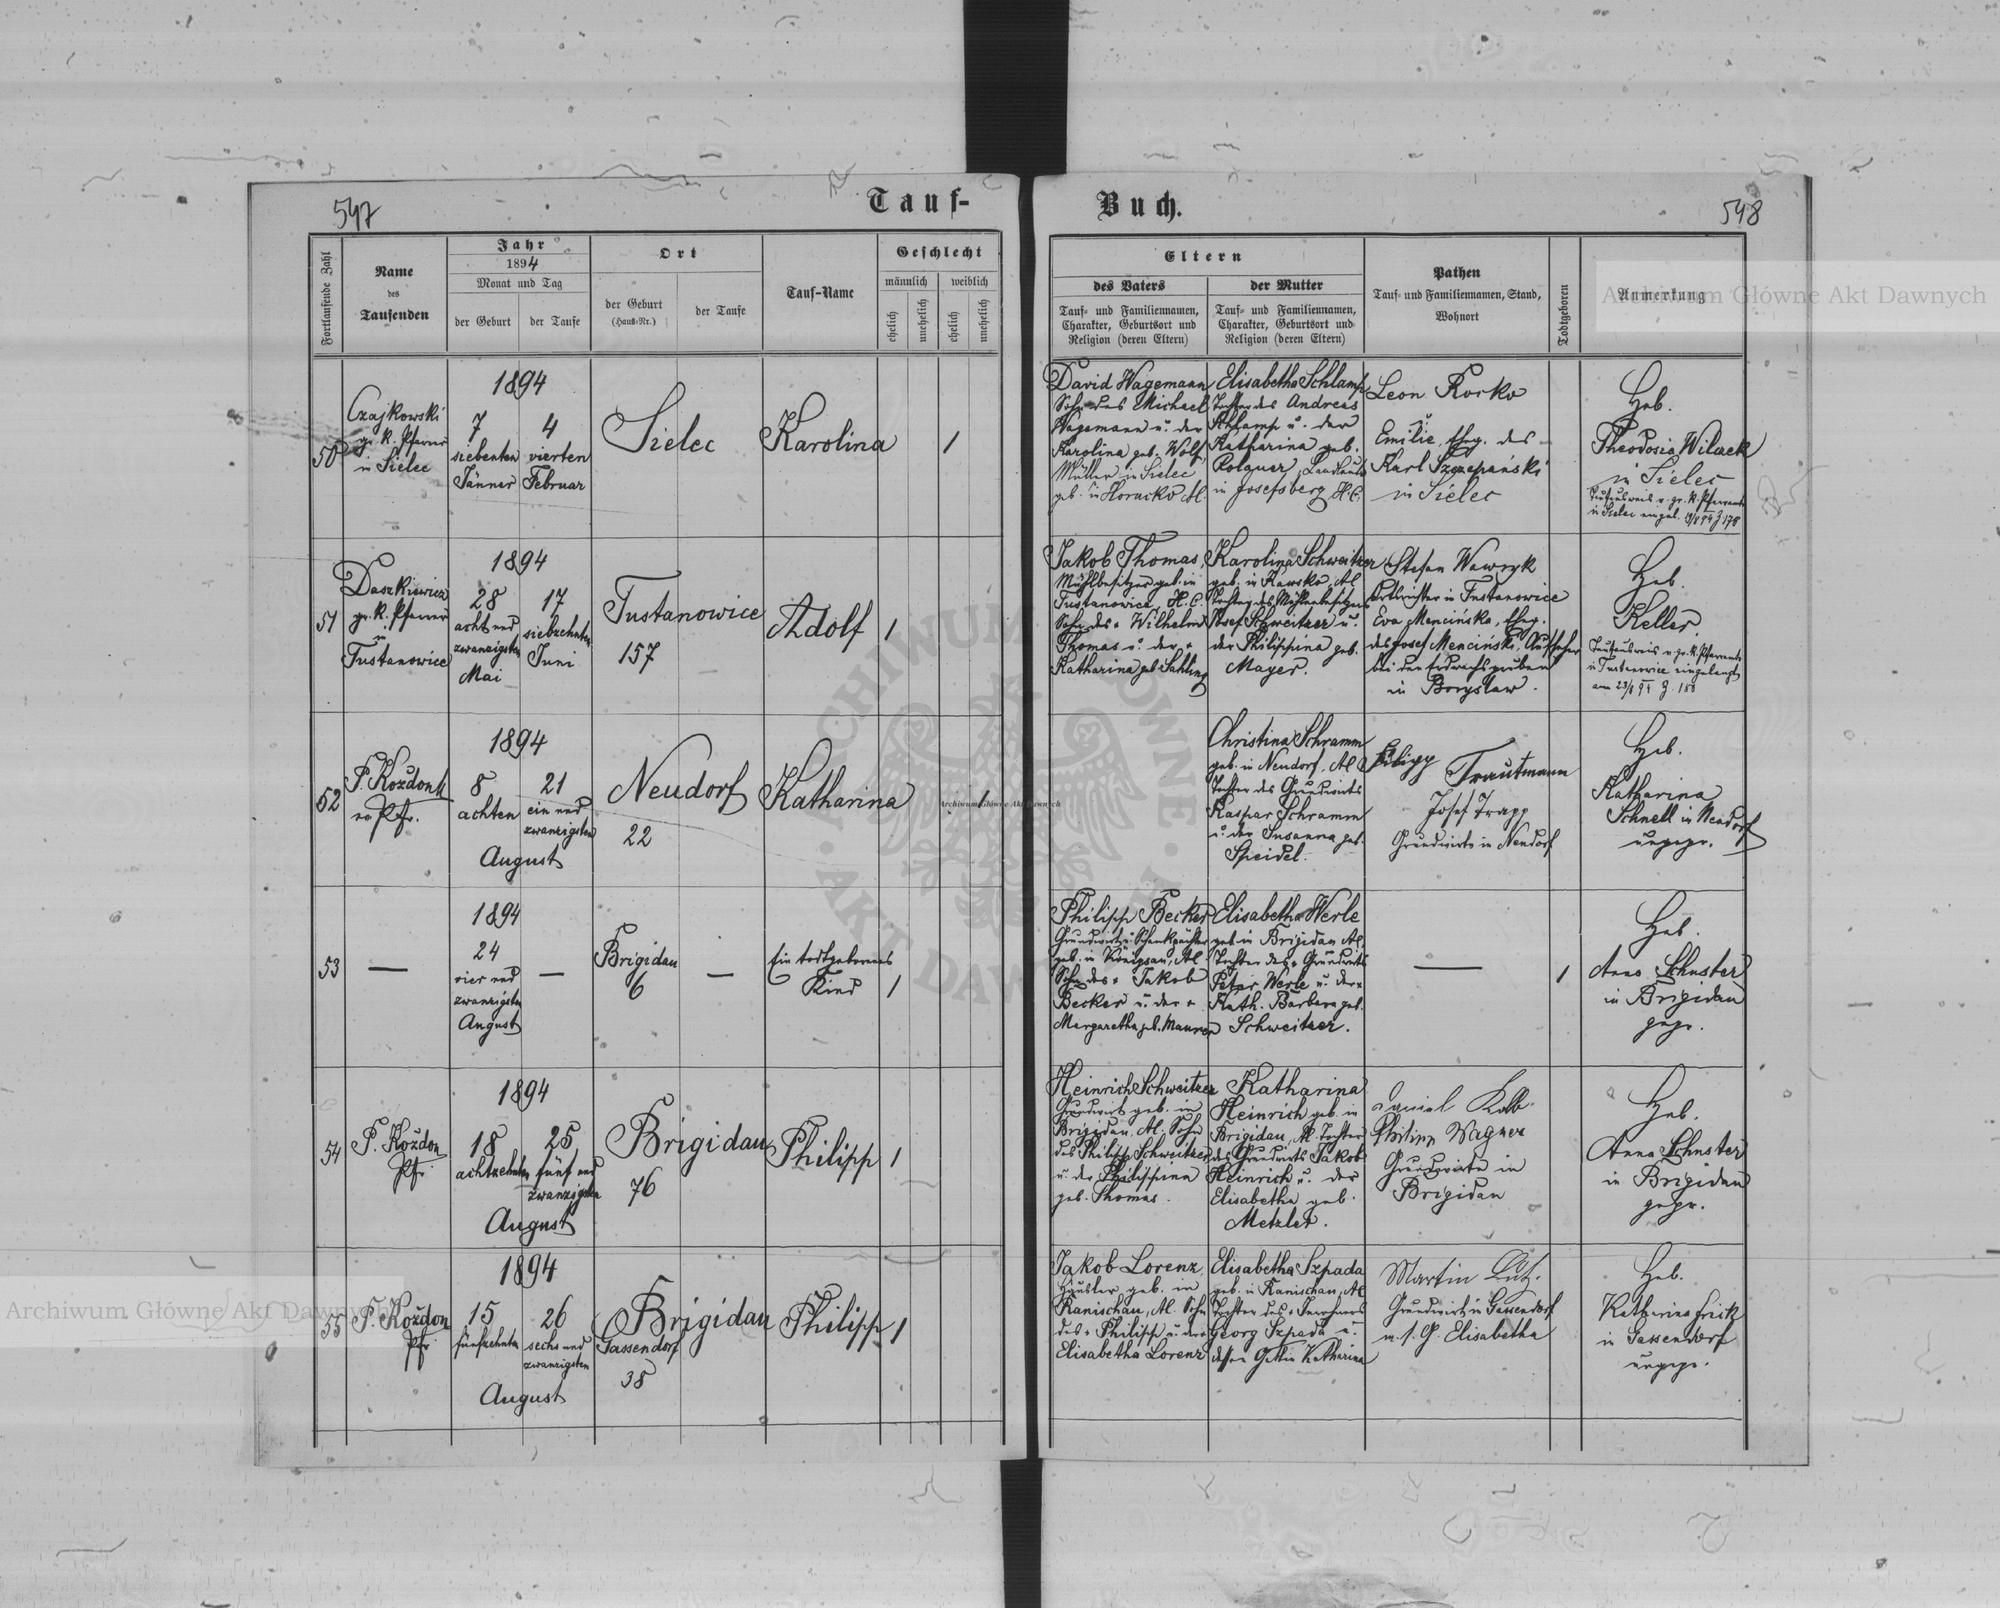 547
Tauf-
Buch.
548
Fortlaufende Zahl
Name
des
Taufenden
Jahr
1894
Monat und Tag
der Geburt
der Taufe
Ort
der Geburt
(Haus-Nr.)
der Taufe
Tauf-Name
Geschlecht
männlich
weiblich
ehelich
unehelich
ehelich
unehelich
Eltern
des Vaters
Tauf- und Familiennamen,
Charakter, Geburtsort und
Religion (deren Eltern)
der Mutter
Tauf- und Familiennamen,
Charakter, Geburtsort und
Religion (deren Eltern)
Pathen
Tauf- und Familiennamen, Stand,
Wohnort
Todtgeboren
Anmerkung
50
Czajkowski
gr. k. Pfarrer
in Sielec
1894
7
siebenten
Jänner
4
vierten
Februar
Sielec
Karolina
1
David Wagemann
Sohn des Michael
Wagemann u. der
Karolina geb. Wolf
Müller in Sielec
geb. in Horucko A.
Elisabetha Schlamp
Tochter des Andreas
Schlamp u. der
Katharina geb.
Polquer, Landleute
in Josefsberg H.C.
Leon Rorko
u.
Emilie, Eheg. des
Karl Szczepański
in Sielec
Heb.
Theodosia Wilczek
in Sielec
Taufausweis v. gr. k. Pfarramte
in Sielec
51
Daszkiewicz
gr. k. Pfarrer
in
Tustanowice
1894
28
acht und
zwanzigsten
Mai
17
siebzehnten
Juni
Tustanowice
157
Adolf
1
Jakob Thomas,
Mühlbesitzer geb. in
Tustanowice, H.C.
Sohn des Wilhelm
Thomas u. der
Katharina geb. Sahling
Karolina Schweitzer
geb. in Kawsko, A.
Tochter des Mühlenbesitzers
Josef Schweitzer u.
der Philippina geb.
Mayer.
Stefan Wawryk
in Tustanowice
Eva Mencińska, Eheg.
des Josef Menciński, Aufseher
bei den Erdwachsgruben
in Borysław.
Heb.
Keller.
Taufausweis v. gr. k. Pfarramte
in Tustanowice eingelangt
am 23/8 94 Z. 180
52
P. Kozdon
ev. Pfr.
1894
8
achten
21
ein und
zwanzigsten
August
Neudorf
22
Katharina
1
Christina Schramm
geb. in Neudorf, A.C.
Tochter des Grundwirts
Kaspar Schramm
u. der Susanna geb.
Speidel.
Filipp Trautmann
Josef Trapp
Grundwirte in Neudorf
Heb.
Katharina
Schnell in Neudorf
ungepr.
53
—
1894
24
vier und
zwanzigsten
August
—
Brigidau
6
—
Ein todtgeborenes
Kind
1
Philipp Becker
Grundwirt u. Schankpächter
geb. in Königsau, A.
Sohn des Jakob
Becker u. der
Margaretha geb. Maurer
Elisabetha Werle
geb. in Brigidau A.
Tochter des Grundwirts
Peter Werle u. der
Kath. Barbara geb.
Schweitzer.
—
1
Heb.
Anna Schuster
in Brigidau
gepr.
54
P. Kozdon
Pfr.
1894
18
achtzehnten
25
fünf und
zwanzigsten
August
Brigidau
76
Philipp
1
Heinrich Schweitzer
Grundwirt geb. in
Brigidau, A. Sohn
des Philipp Schweitzer
u. der Philippina
geb. Thomas.
Katharina
Heinrich geb. in
Brigidau, A. Tochter
des Grundwirts Jakob
Heinrich u. der
Elisabetha geb.
Metzler.
Daniel Kolb
Philipp Wagner
Grundwirte in
Brigidau
Heb.
Anna Schuster
in Brigidau
gepr.
55
P. Kozdon
Pfr.
1894
15
fünfzehnten
26
sechs und
zwanzigsten
August
Brigidau
Gassendorf
38
Philipp
1
Jakob Lorenz,
Häusler geb. in
Ranischau, A. Sohn
des Philipp u. der
Elisabetha Lorenz
Elisabetha Szpada
geb. in Ranischau, A.
Tochter des Inwohners
Georg Szpada u.
dessen Gattin Katharina
Martin Lutz.
Grundwirt in Gassendorf
m. s. G. Elisabetha
Heb.
Katharina Frick
in Gassendorf
ungepr.
Archiwum Główne Akt Dawnych
Archiwum Główne Akt Dawnych
Archiwum Główne Akt Dawnych
ARCHIWUM GŁÓWNE AKT DAWNYCH